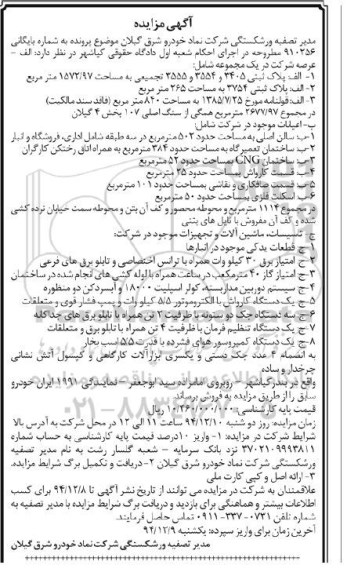 آگهی مزایده
مدیر تصفیه ورشکستگی شرکت نماد خودرو شرق گیلان موضوع پرونده به شماره بایگانی
۹۱۰۳۵۶ مطروحه در اجرای احکام شعبه اول دادگاه حقوقی کیاشهر در نظر دارد: الف -
عرصه شرکت در یک مجموعه شامل:
۱- الف: پلاک ثبتی ۳۴۰۵ و ۳۵۵۴ و ۲۵۵۵ تجمیعی به مساحت ۱۵۷۲/۹۷ متر مربع
۲- الف: پلاک ثبتی ۳۷۵۴ به مساحت ۲۶۵ متر مربع
۳- الف: قولنامه مورخ ۱۳۸۵/۷/۲۵ به مساحت ۸۴۰ متر مربع (فاقد سند مالکیت)
در مجموع ۲۶۷۷/۹۷ مترمربع همگی از سنگ اصلی ۱۰۷ بخش ۴ گیلان
ب- اعیانات موجود در شرکت شامل:
۱- ب: سالن اصلی به مساحت حدود ۵۰۲ مترمربع در سه طبقه شامل اداری، فروشگاه و انبار
۲- ب: ساختمان تعمیرگاه به مساحت حدود ۳۸۴ مترمربع به همراه اتاق رختکن کارگران
۳- ب: ساختمان CNG بمساحت حدود ۵۲ مترمربع
۴- ب: قسمت کارواش بمساحت حدود ۲۵ مترمربع
۵- ب: قسمت صافکاری و نقاشی بمساحت حدود ۱۰۱ مترمربع
۶- ب: اسکلت فلزی بمساحت حدود ۵۰ مترمربع
مجموع ۱۱۱۴ مترمربع و محوطه محصور و کف آن بتن و محوطه سمت خیابان نرده کشی
شده و کف آن مفروش با تایل های بتنی
ج- تاسیسات، ماشین آلات و تجهیزات موجود در شرکت:
۱- ج: قطعات یدکی موجود در انبارها
۲- ج: امتیاز برق ۳۰ کیلو وات همراه با ترانس اختصاصی و تابلو برق های فرعی
۳- ج: امتیاز گاز ۴۰ مترمکعب در ساعت همراه با لوله کشی های انجام شده در ساختمان
۴- ج: سیستم دوربین مداربسته، کولر اسپلیت ۱۸۰۰۰ و آبسردکن دو منظوره
۵- ج: یک دستگاه کارواش با الکتروموتور ۵/۵ کیلو وات و پمپ فشار قوی و متعلقات
۶- ج: سه دستگاه جک دو ستونه با ظرفیت ۲ تن همراه با تابلو برق های جداگانه
۷- ج: یک دستگاه تنظیم فرمان با ظرفیت ۴ تن همراه با تابلو برق و متعلقات
۸- ج: یک دستگاه کمپروسور هوای فشرده با قدرت ۵/۵ اسب بخار
به انضمام ۴ عدد جک دستی و یکسری ابزارآلات کارگاهی و کپسول آتش نشانی
چرخدار و ساده
واقع در بندرکیاشهر - روبروی امامزاده سید ابوجعفر - نمایندگی ۱۹۹۱ ایران خودرو
سابق را از طریق مزایده به فروش برساند.
قیمت پایه کارشناسی: ۱۰/۲۶۰/۰۰۰/۰۰۰ ریال
زمان مزایده: روز دو شنبه ۹۴/۱۲/۱۰ ساعت ۱۱ الی ۱۲ در محل شرکت به آدرس بالا
شرایط شرکت در مزایده: ۱- واریز ۱۰درصد قیمت پایه کارشناسی به حساب شماره
۳۷۰۲۱۰۹۹۹۳۸۱۱ نزد بانک سرمایه - شعبه گلسار رشت به نام مدیر تصفیه
ورشکستگی شرکت نماد خودرو شرق گیلان ۲- دریافت و تکمیل برگ شرایط مزایده.
۳- ارائه اصل و کپی کارت ملی
علاقمندان به شرکت در مزایده می توانند از تاریخ نشر آگهی تا ۹۴/۱۲/۸ برای کسب
اطلاعات بیشتر و هماهنگی برای بازدید و دریافت برگ شرایط مزایده با مدیر تصفیه به
شماره تلفن ۰۷۳۱-۳۳۷-۰۹۱۱ تماس حاصل فرمایند.
آخرین زمان برای واریز سپرده: یکشنبه ۹۴/۱۲/۹
مدیر تصفیه ورشکستگی شرکت نماد خودرو شرق گیلان